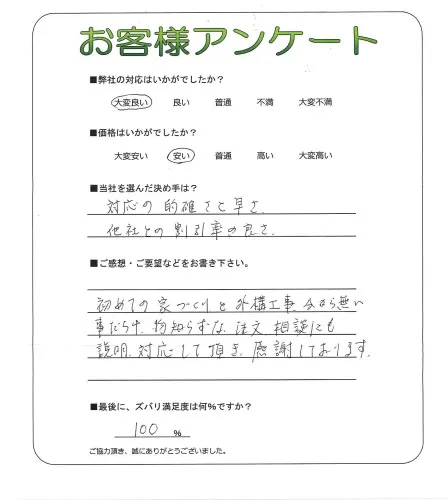 お客様アンケート
■弊社の対応はいかがでしたか？
大変良い 良い 普通 不満 大変不満
■価格はいかがでしたか？
大変安い 安い 普通 高い 大変高い
■当社を選んだ決め手は？
対応の的確さと早さ、
他社との割引率の良さ、
■ご感想・ご要望などをお書き下さい。
初めての家づくりと外構工事、分から無い
事だらけ、物知らずな、注文相談にも
説明、対応して頂き、感謝しております。
■最後に、ズバリ満足度は何％ですか？
100 ％
ご協力頂き、誠にありがとうございました。